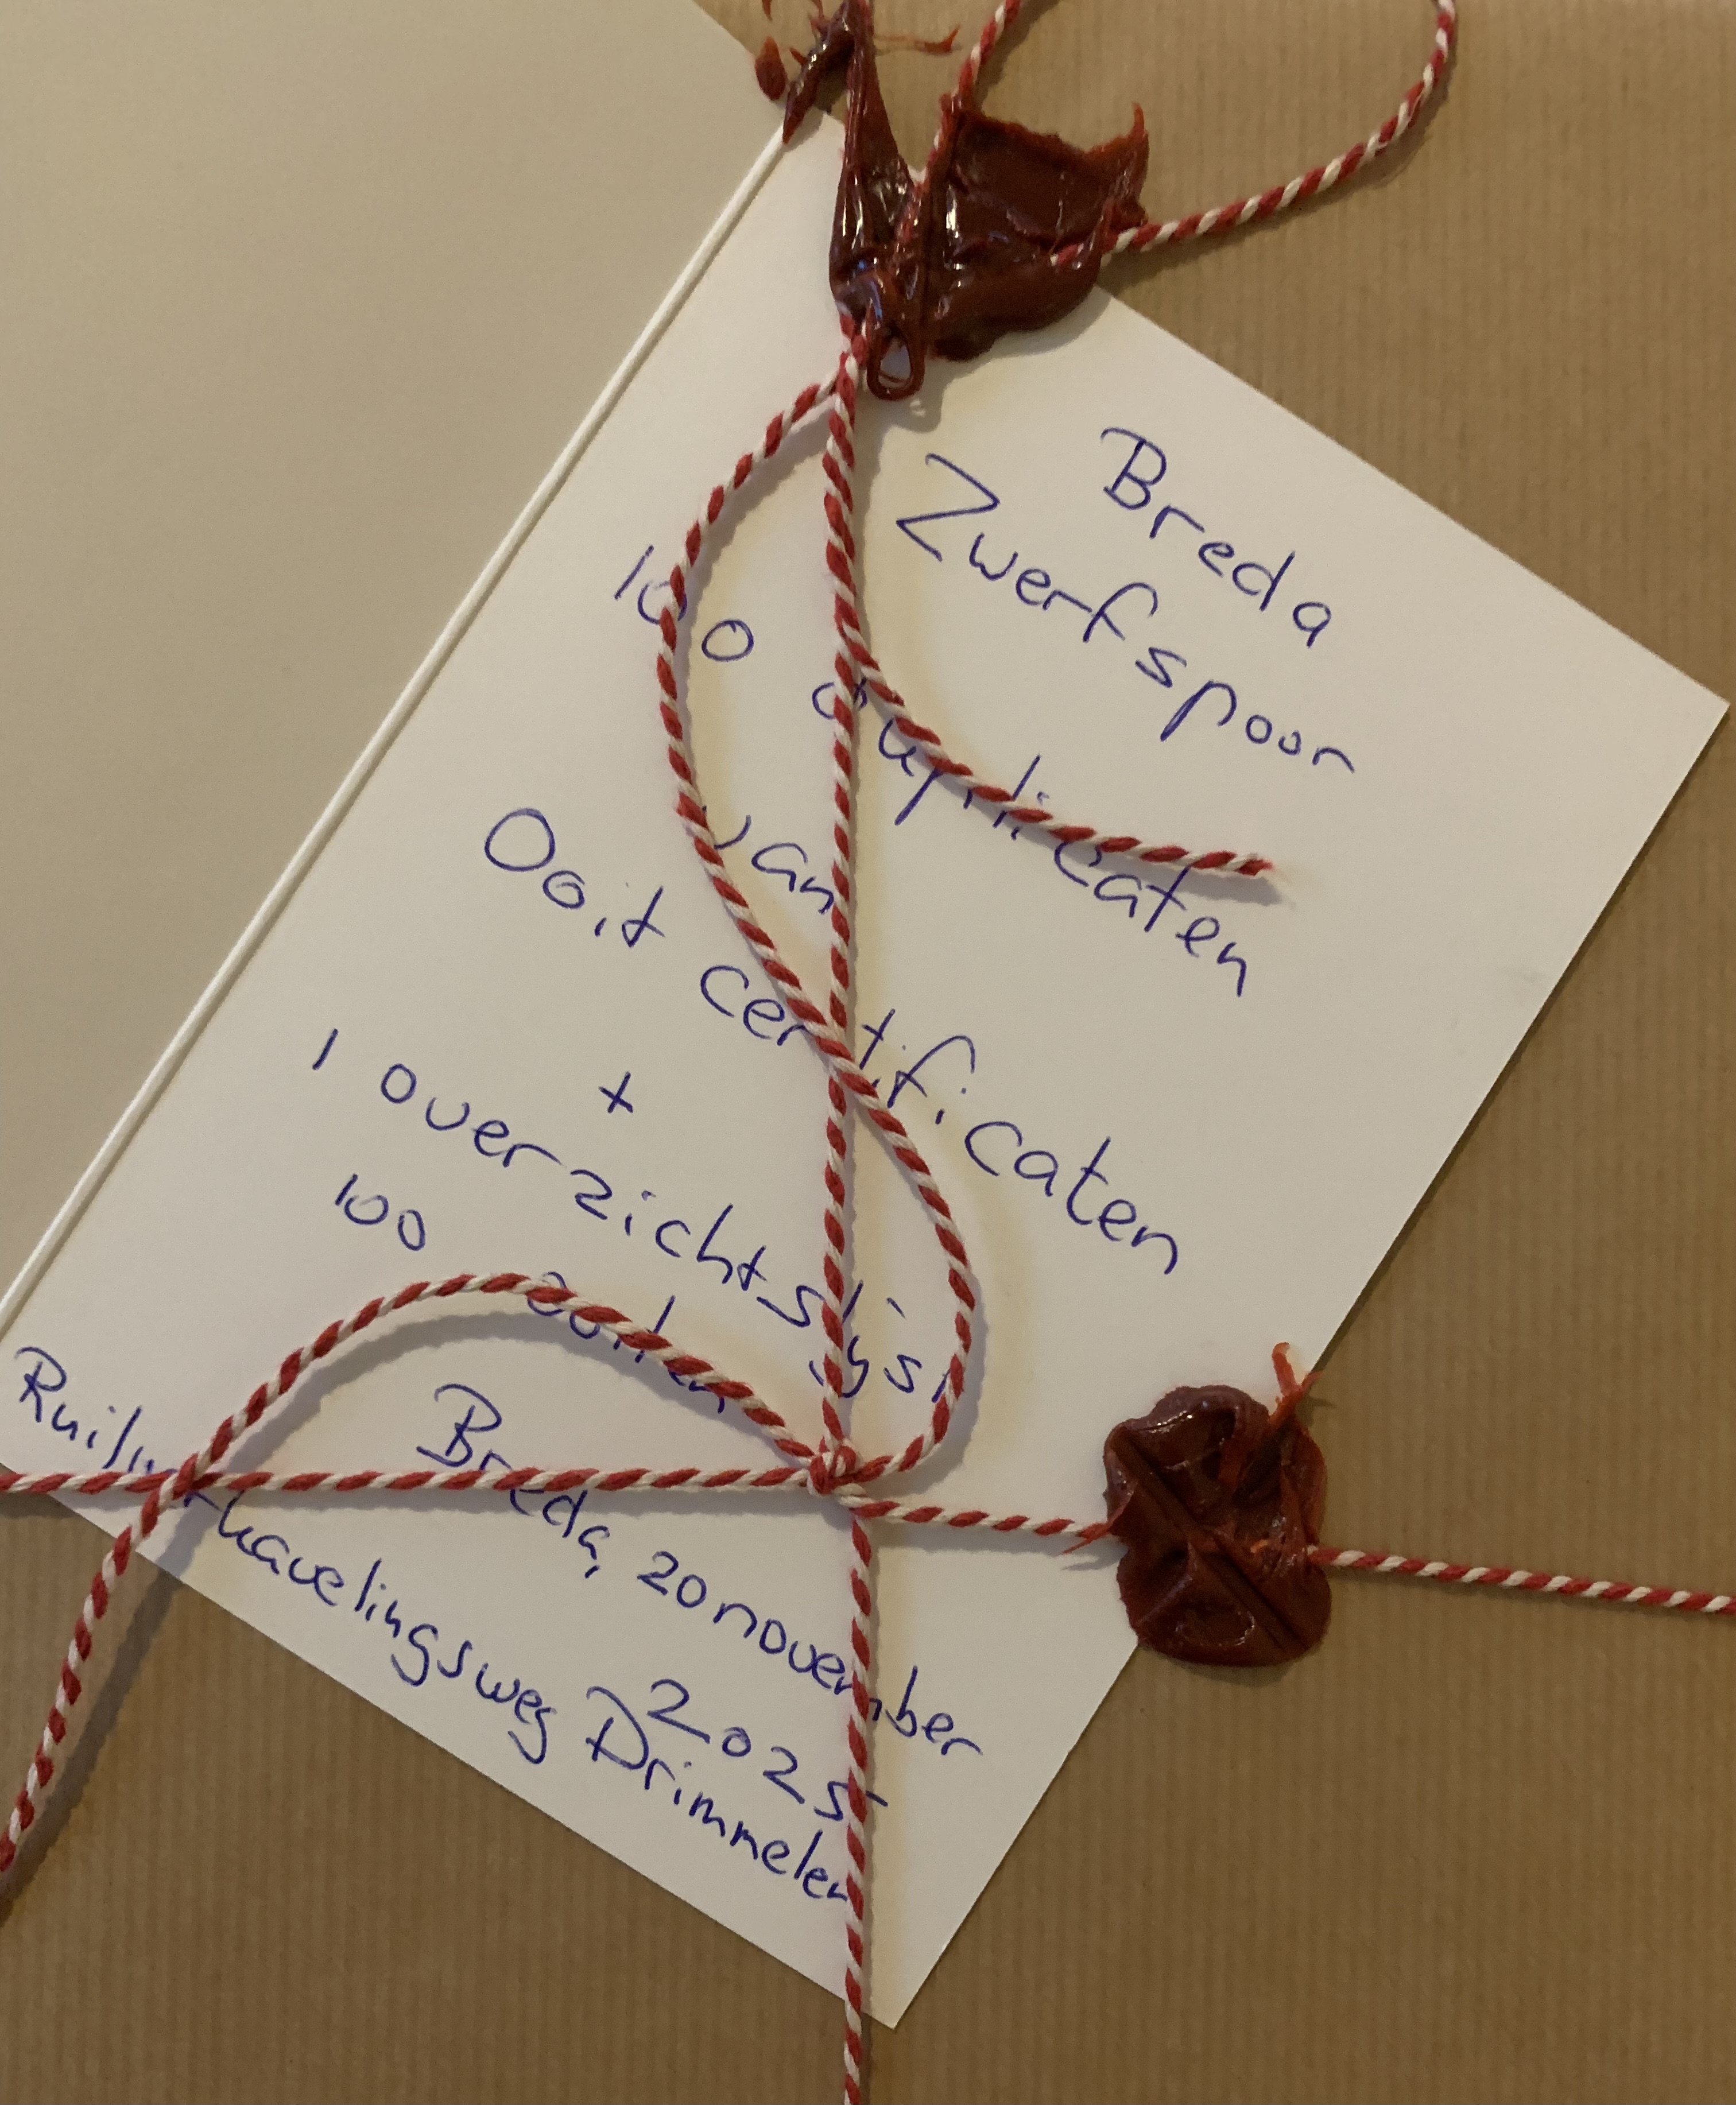 Breda
Zwerfspoor
100 duplicaten
van
Ooit certificaten
+
1 overzichtslijst
100
Breda, 20 november
2025
Ruilverkavelingsweg Drimmelen